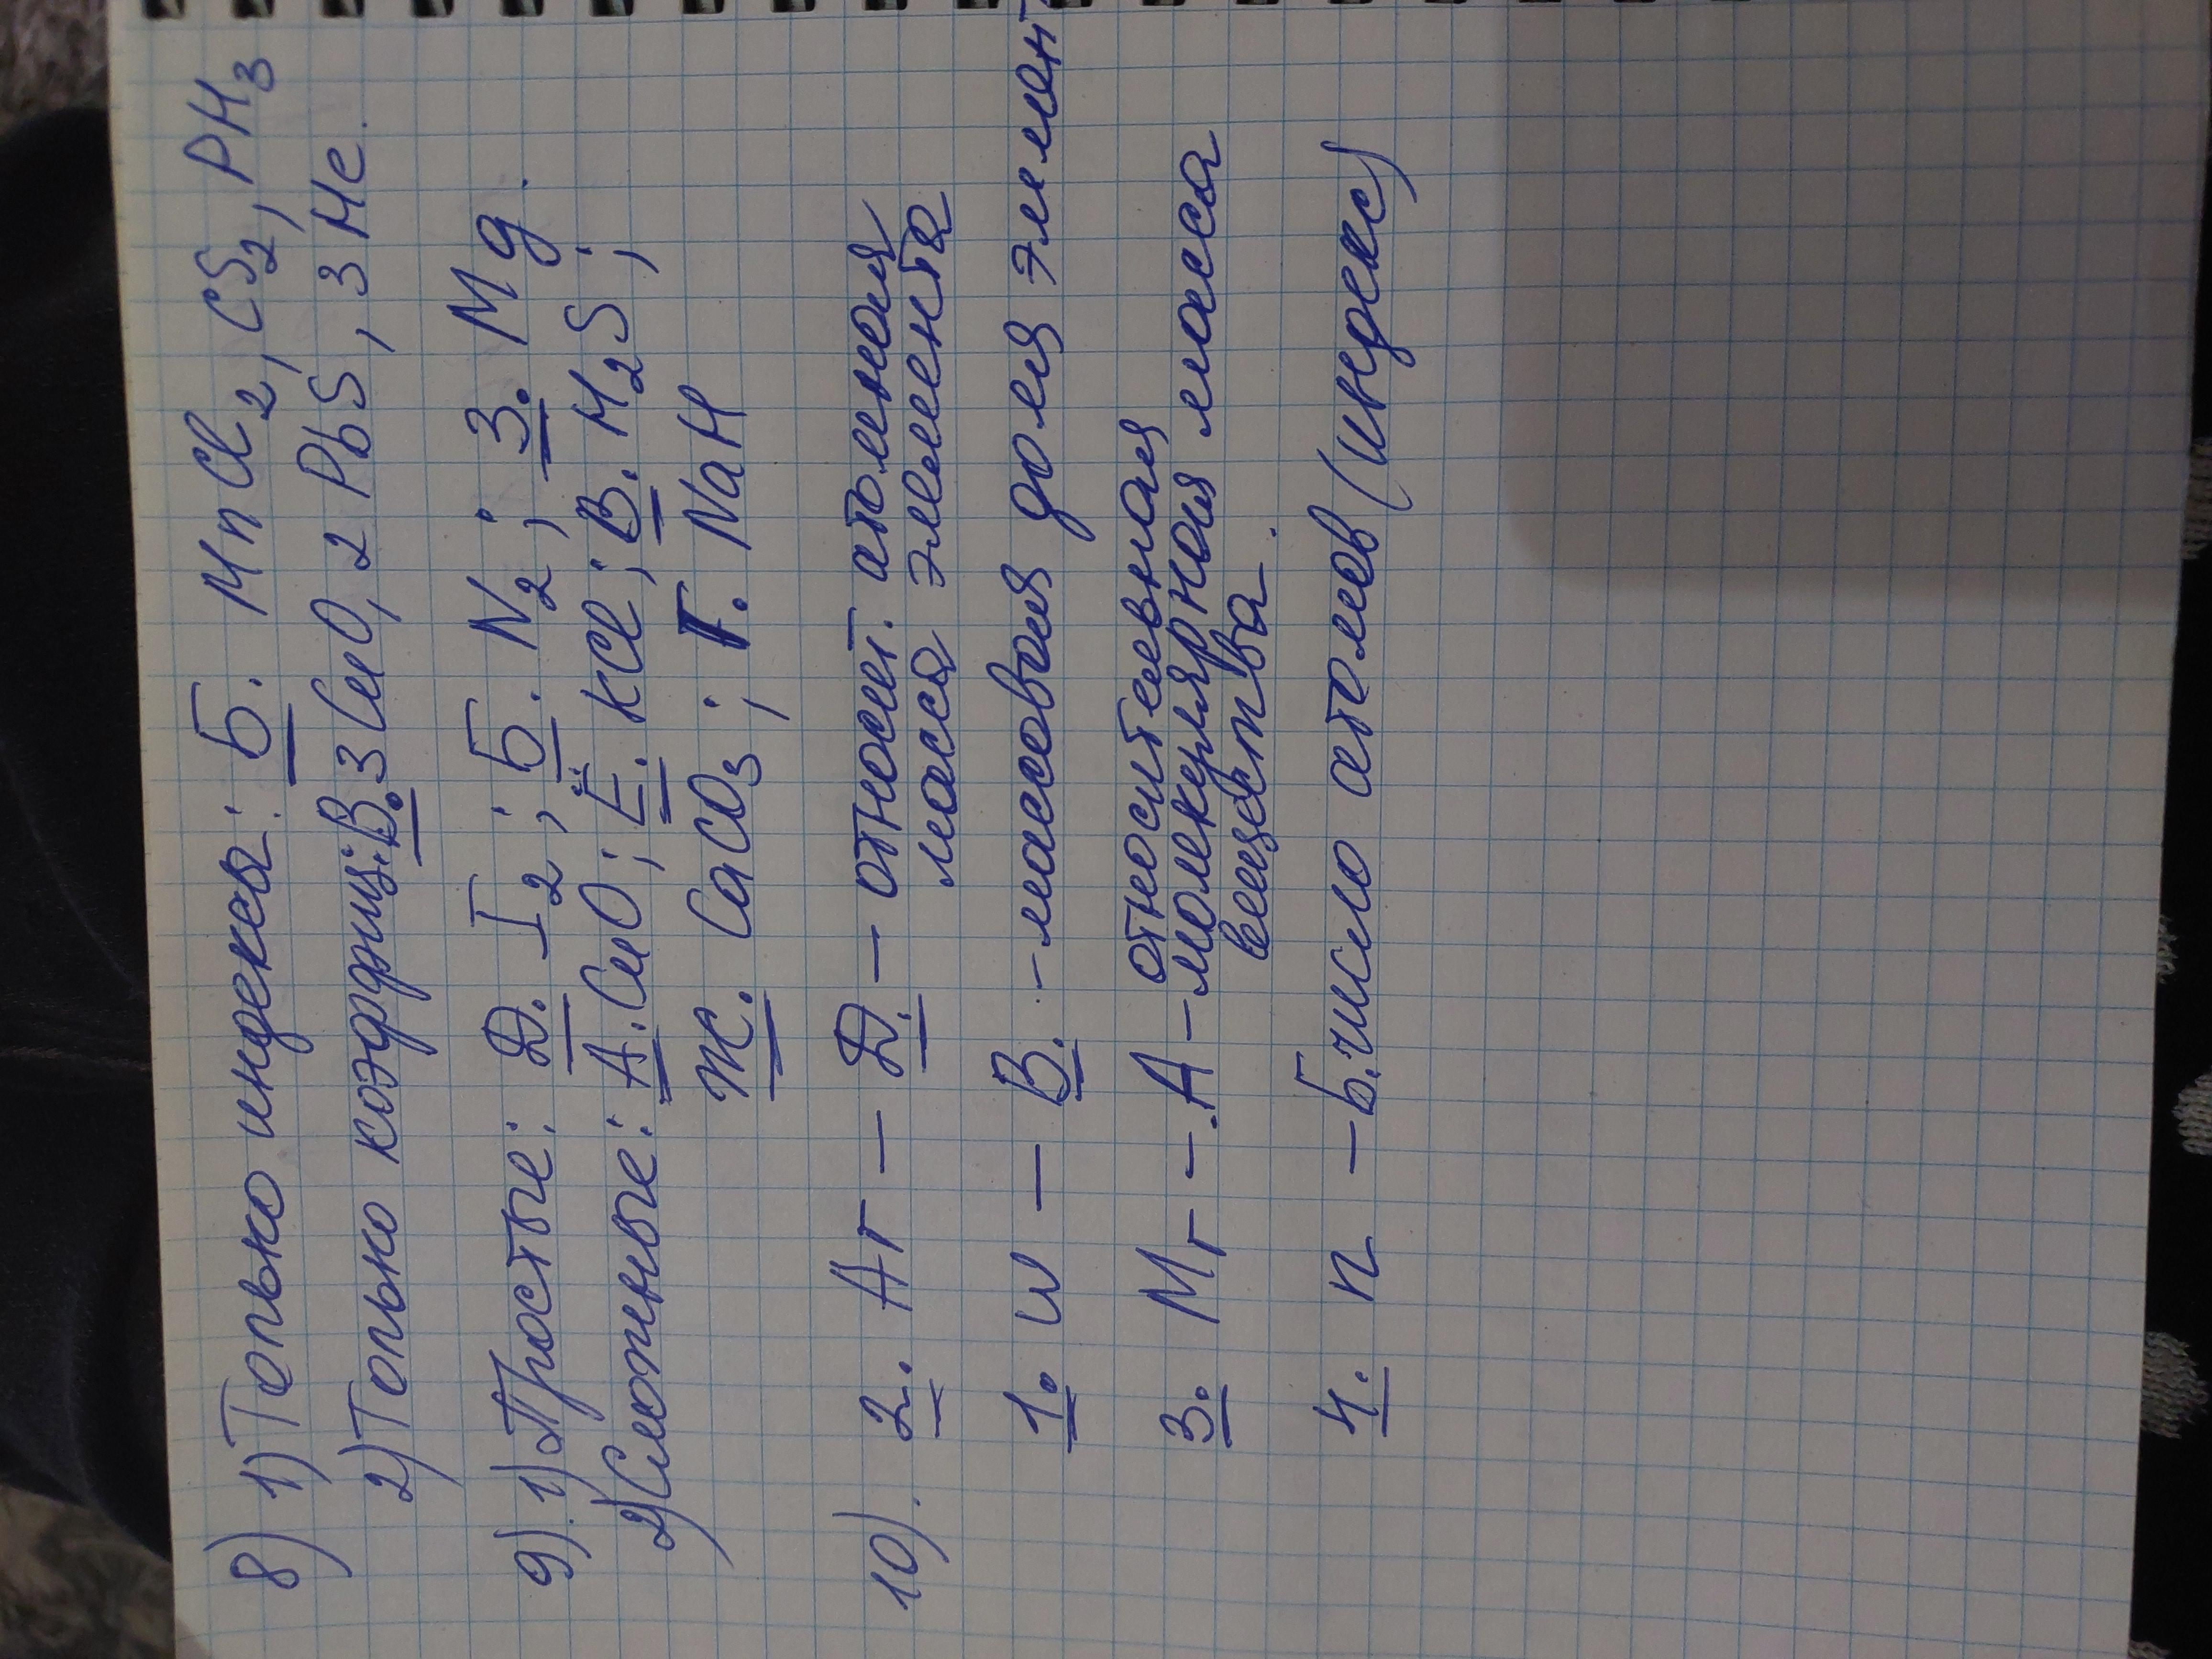 8) 1) Только индексы: Б. MnCl2, CS2, PH3
2) Только коэффиц.: В. 3 CuO, 2 PbS, 3 He.
9). 1) Простые: Д. I2; Б. N2; З. Mg.
2) Сложные: А. CuO; Ё. KCl; В. H2S;
Ж. CaCO3; Г. NaH
10). 2. Ar – Д. – относит. атомная
масса элемента
1. w – В. – массовая доля элемент
3. Mr – А – относительная
молекулярная масса
вещества.
4. n – Б. число атомов (индекс)